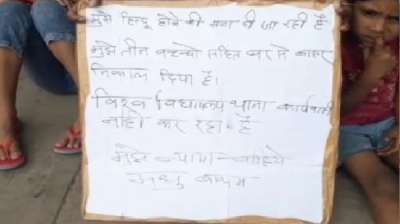 मुझे हिन्दू होने की सजा दी जा रही है
मुझे तीन बच्चो सहित घर से बाहर
निकाल दिया है।
विश्व विद्यालय थाना कार्यवाही
नही कर रहा है
मुझे न्याय चाहिये